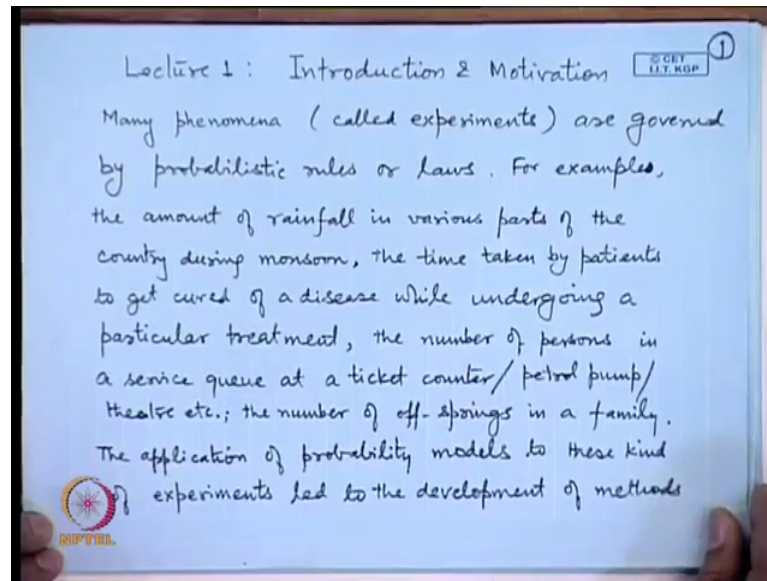 Lecture 1 : Introduction & Motivation
© CET
I.I.T. KGP
1
Many phenomena ( called experiments ) are governed
by probabilistic rules or laws. For examples,
the amount of rainfall in various parts of the
country during monsoon, the time taken by patients
to get cured of a disease while undergoing a
particular treatment, the number of persons in
a service queue at a ticket counter/ petrol pump/
theatre etc.; the number of off-springs in a family.
The application of probability models to these kind
of experiments led to the development of methods
NPTEL